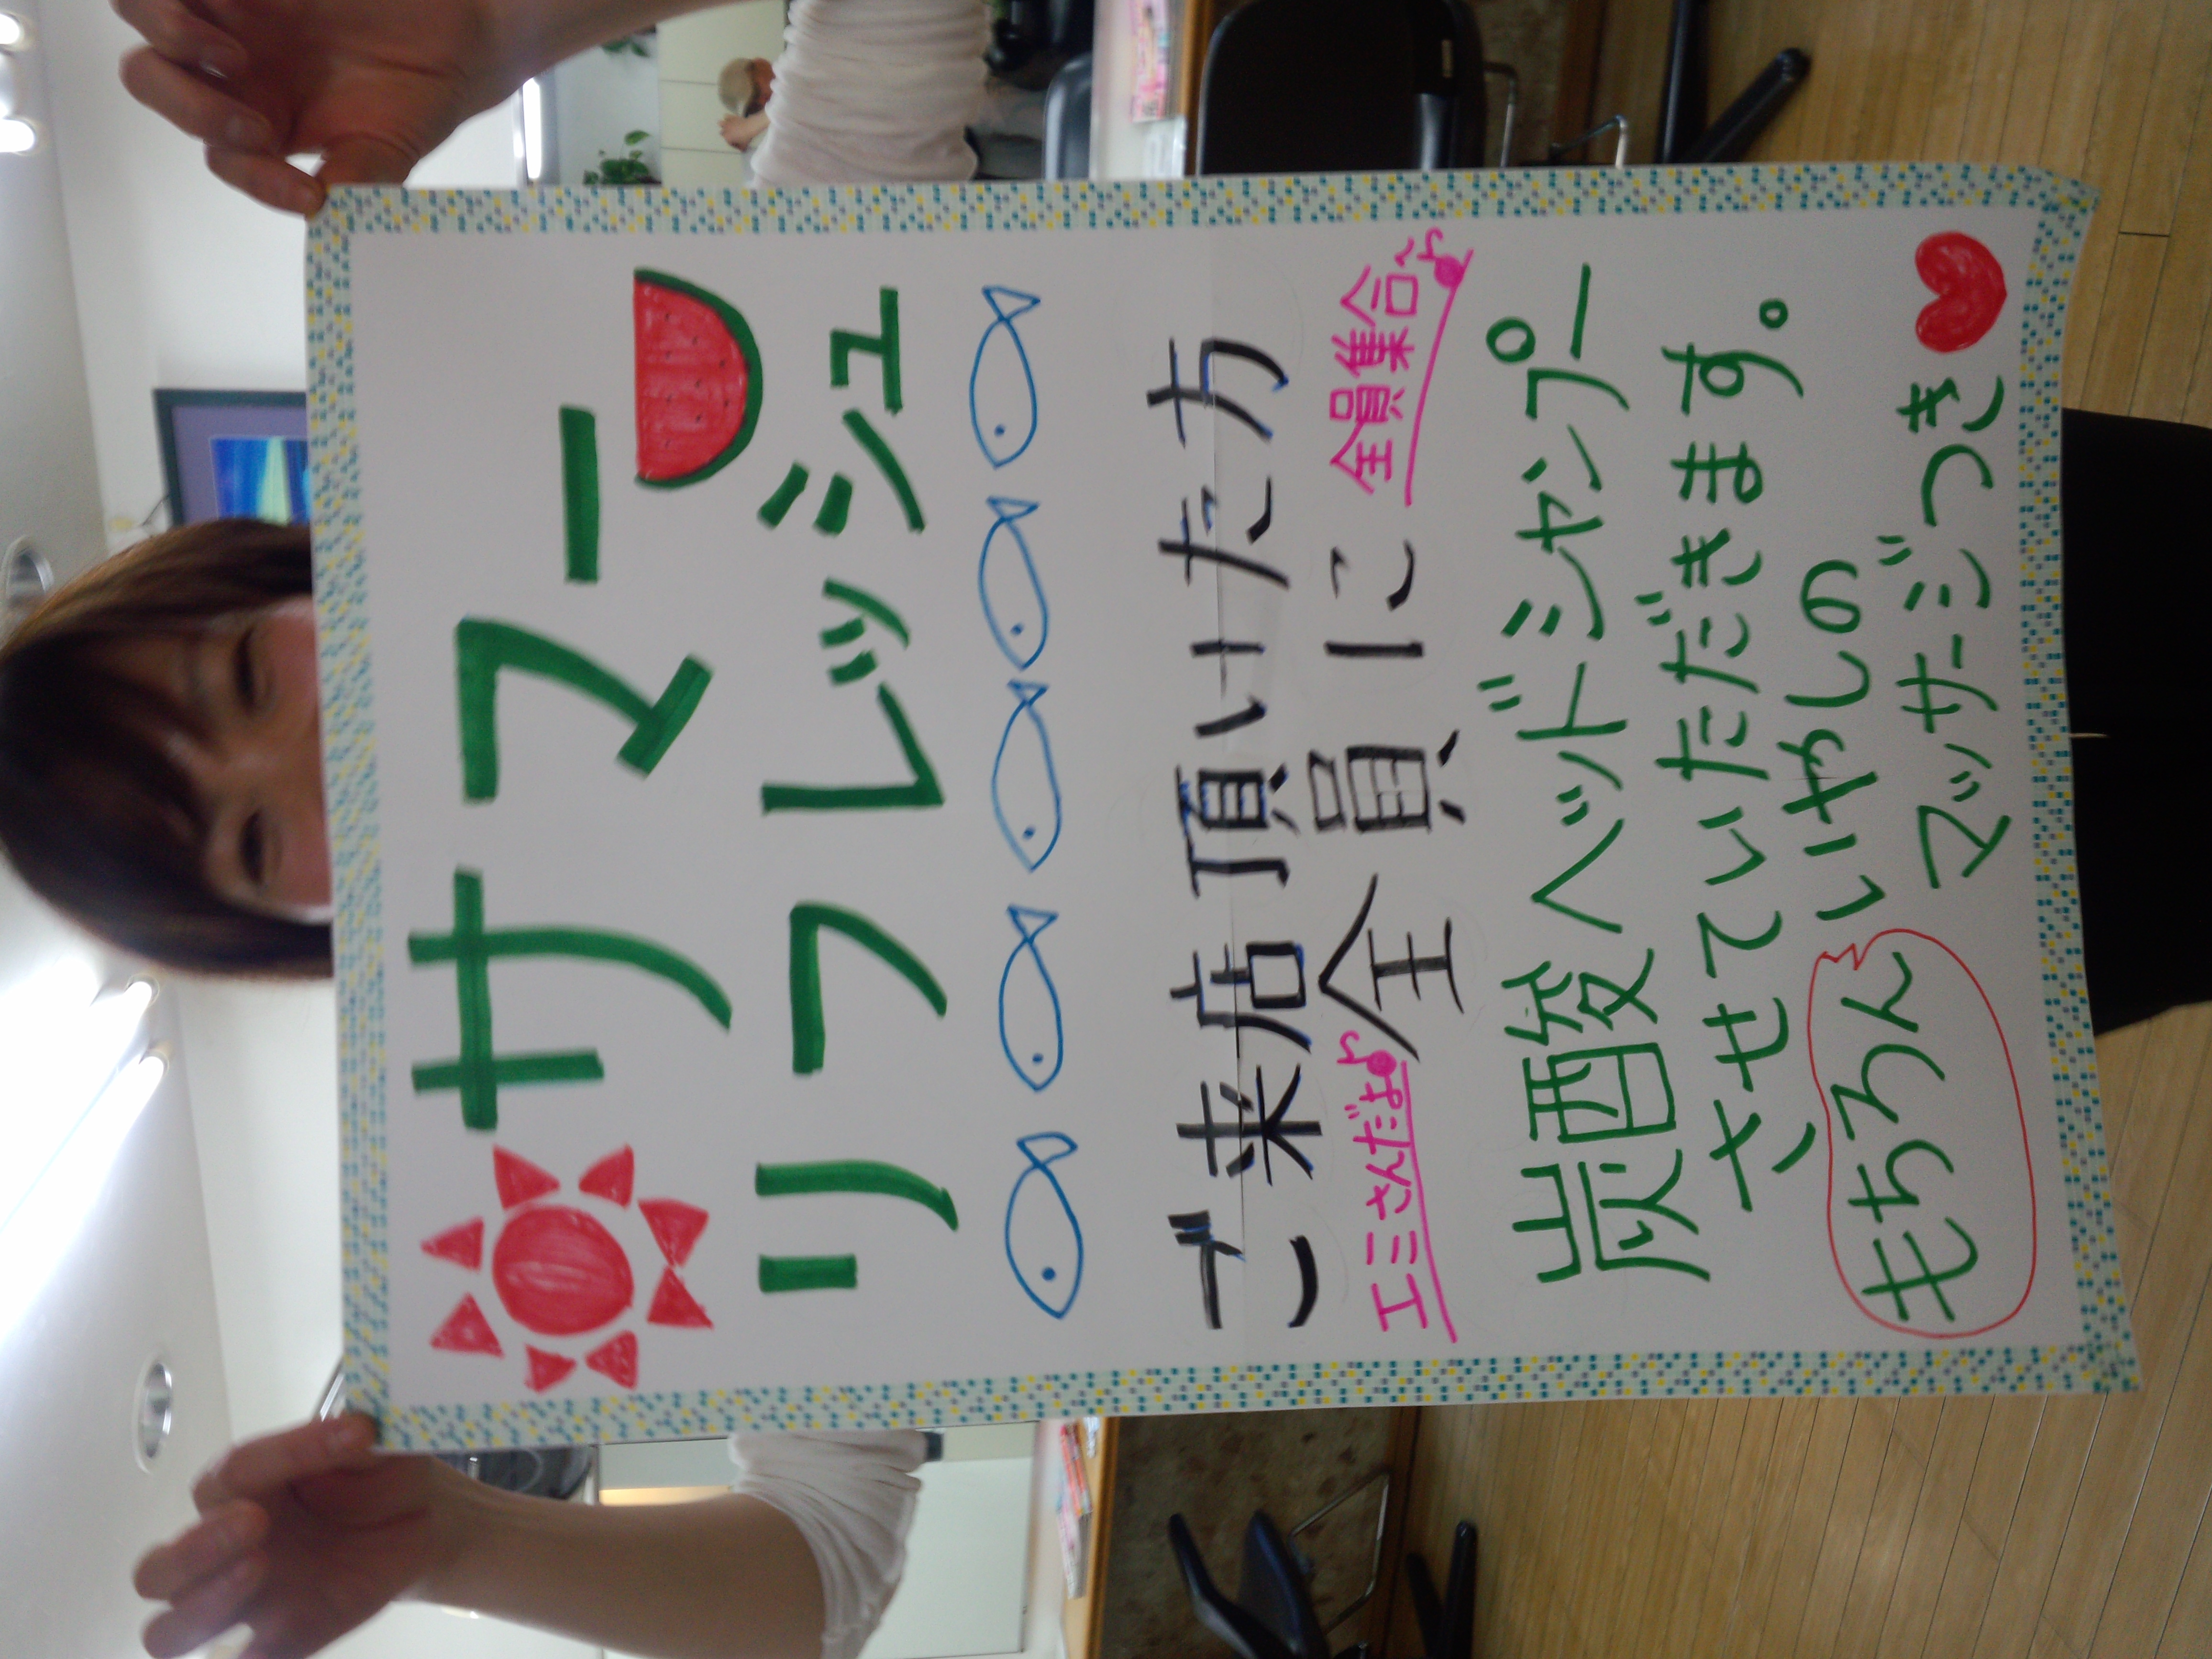 サマー
リフレッシュ
ご来店頂いた方
全員に
エミさんだよ♪
全員集合～♪
炭酸ヘッドシャンプー
させていただきます。
もちろんいやしの
マッサージつき